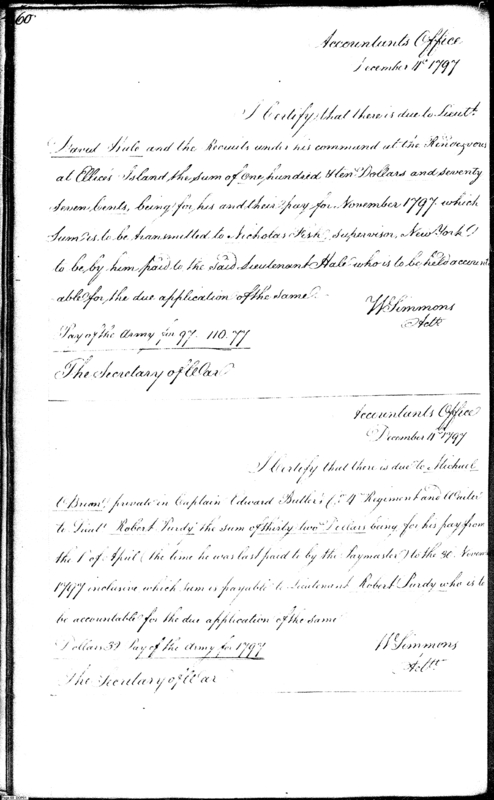 60
Accountants Office
December 4th 1797
I Certify that there is due to Lieut.
David Hale and the Recruits under his command at the Rendezvous
at Ellice's Island the sum of one hundred & ten Dollars and seventy
seven Cents, being for his and their pay for November 1797 which
Sum is to be transmitted to Nicholas Fish, Supervisor, New York
to be by him paid to the said Lieutenant Hale who is to be held account
able for the due application of the same.
Wm Simmons
Actt
Pay of the Army for 97. 110.77
The Secretary of War
Accountants Office
December 4th 1797
I Certify that there is due to Michael
OBrian, private in Captain Edward Butler's Co. 4th Regiment and Waiter
to Lieut. Robert Purdy the sum of thirty two Dollars being for his pay from
the 1st of April (the time he was last paid to by the Paymaster) to the 30 Novem
1797 inclusive which sum is payable to Lieutenant Robert Purdy who is to
be accountable for the due application of the same
Dollars 32 Pay of the Army for 1797
Wm Simmons
Actt
The Secretary of War